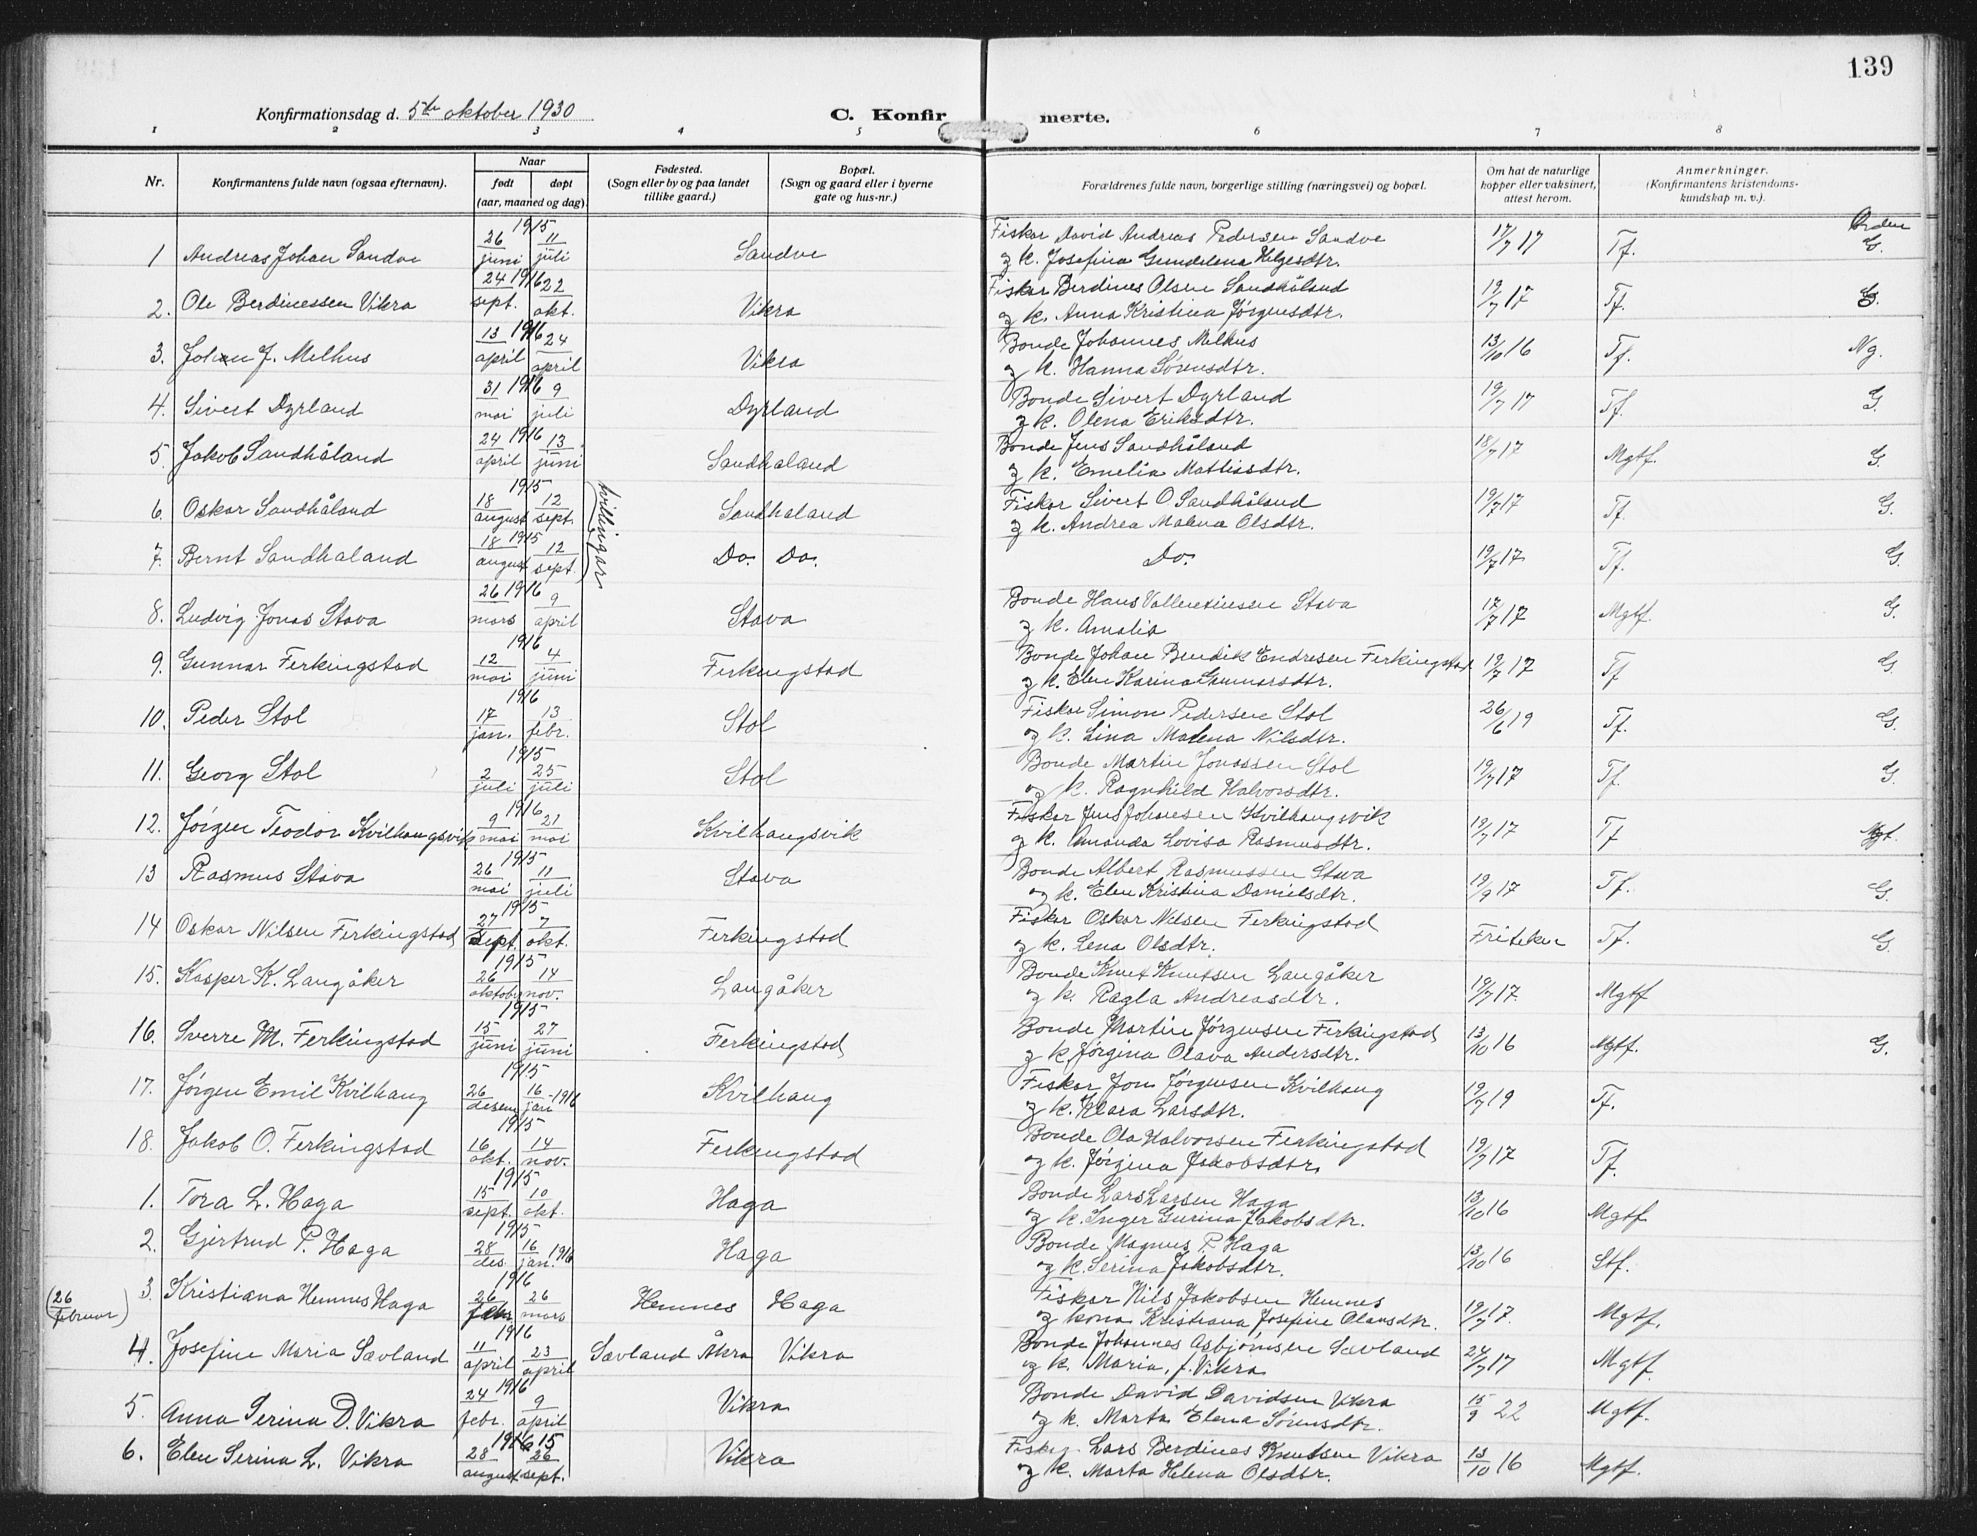 139
Konfirmationsdag d. 5te oktober 1930
C. Konfirmerte.
1 2 3 4 5 6 7 8
Nr.
Konfirmantens fulde navn (ogsaa efternavn).
Naar
født døpt
(aar, maaned og dag).
Fødested.
(Sogn eller by og paa landet
tillike gaard.)
Bopæl.
(Sogn og gaard eller i byerne
gate og hus-nr.)
Forældrenes fulde navn, borgerlige stilling (næringsvei) og bopæl.
Om hat de naturlige
kopper eller vaksinert,
attest herom.
Anmerkninger.
(Konfirmantens kristendoms-
kundskap m. v.).
1915 Fiskar David Andreas Pedersen Sandve
1 Andreas Johan Sandve 26/juni 11/juli Sandve og k. Josefina Gundelena Helgesdtr. 17/7 17 Tf. G.
1916 Fiskar Berdines Olsen Sandhåland
2. Ole Berdinessen Vikra 24/sept. 22/okt. Vikra og k. Anna Kristina Jørgensdtr. 19/7 17 Tf. G.
1916 Bonde Johannes Melhus
3. Johan J. Melhus 13/april 24/april Vikra og k. Hanna Sørensdtr. 13/10 16 Tf. Ng.
1916 Bonde Sivert Dyrland
4. Sivert Dyrland 31/mai 9/juli Dyrland og k. Olena Eriksdtr. 19/7 17 Tf. G.
1916 Bonde Jens Sandhåland
5. Jakob Sandhåland 24/april 13/juni Sandhaland og k. Emelia Mattiasdtr. 18/7 17 Mgtf. G.
1915 tvillingar Fiskar Sivert O. Sandhåland
6. Oskar Sandhåland 18/august 12/sept. Sandhaland og k. Andrea Malena Olsdtr. 19/7 17 Tf. G.
1915
7. Bernt Sandhaland 18/august 12/sept. Do. Do. Do. 19/7 17 Tf. G.
1916 Bonde Hans Stava
8. Ludvig Jonas Stava 26/mars 9/april Stava og k. Amalia 17/7 17 Mgtf. G.
1916 Bonde Johan Bendik Endresen Ferkingstad
9. Gunnar Ferkingstad 12/mai 4/juni Ferkingstad og k. Elen Karina Gunnarsdtr. 19/7 17 Tf G.
1916 Fiskar Simon Pedersen Stol
10. Peder Stol 17/jan. 13/febr. Stol og k. Lina Malena Nilsdtr. 26/6 19 Tf. G.
1915 Bonde Martin Jonassen Stol
11. Georg Stol 2/juli 25/juli Stol og k. Ragnhild Halvorsdtr. 19/7 17 Tf. G.
1916 Fiskar Jens Johansen Kvilhaugsvik
12. Jørgen Teodor Kvilhaugsvik 9/mai 21/mai Kvilhaugsvik og k. Amanda Lovisa Rasmusdtr. 19/7 17 Tf Mgt.
1915 Bonde Albert Rasmussen Stava
13 Rasmus Stava 26/mai 11/juli Stava og k. Elen Kristina Danielsdtr. 19/9 17 Tf. G.
1915 Fiskar Oskar Nilsen Ferkingstad
14 Oskar Nilsen Ferkingstad 27/sept. 7/okt. Ferkingstad og k. Lena Olsdtr. Friteken Tf. G.
1915 Bonde Knut Knutsen Langåker
15. Kasper K. Langåker 26/oktober 14/nov. Langåker og k. Ragla Andreasdtr. 19/7 17 Mgtf
1915 Bonde Martin Jørgensen Ferkingstad
16. Sverre M. Ferkingstad 15/juni 27/juni Ferkingstad og k. Jørgina Olava Andersdtr. 13/10 16 Mgtf. G.
1915 Fiskar Jon Jørgensen Kvilhaug
17. Jørgen Emil Kvilhaug 26/desem 16/jan 1916 Kvilhaug og k. Klara Larsdtr. 19/7 19 Tf.
1915 Bonde Ola Halvorsen Ferkingstad
18. Jakob O. Ferkingstad 16/okt. 14/nov. Ferkingstad og k. Jørgina Jakobsdtr. 19/7 17 Tf.
1915 Bonde Lars Larsen Haga
1. Tora L. Haga 15/sept. 10/okt. Haga og k. Inger Gurina Jakobsdtr. 13/10 16 Mgtf.
1915 Bonde Magnus P. Haga
2. Gjertrud P. Haga 28/des. 16/jan. 1916 Haga og k. Serina Jakobsdtr. 13/10 16 Stf.
1916 Fiskar Nils Jakobsen Hemnes
(26/februar) 3. Kristiana Hemnes Haga 26/febr 26/mars Hemnes Haga og kona Kristiana Josefine Olausdtr. 19/7 17. Mgtf.
1916 Bonde Johannes Asbjørnsen Sævland
4. Josefine Maria Sævland 11/april 23/april Sævland Åkra Vikra og k. Maria, f. Vikra 24/7 17 Mgtf.
1916 Bonde David Davidsen Vikra
5. Anna Serina D. Vikra 24/febr. 9/april Vikra og k. Marta Elena Sørensdtr. 15/9 22 Mgtf.
1915 Fiskar Lars Berdines Knutsen Vikra
6. Elen Serina L. Vikra 28/august 26/sept. Vikra og k. Marta Helena Olsdtr. 13/10 16 Mgtf.